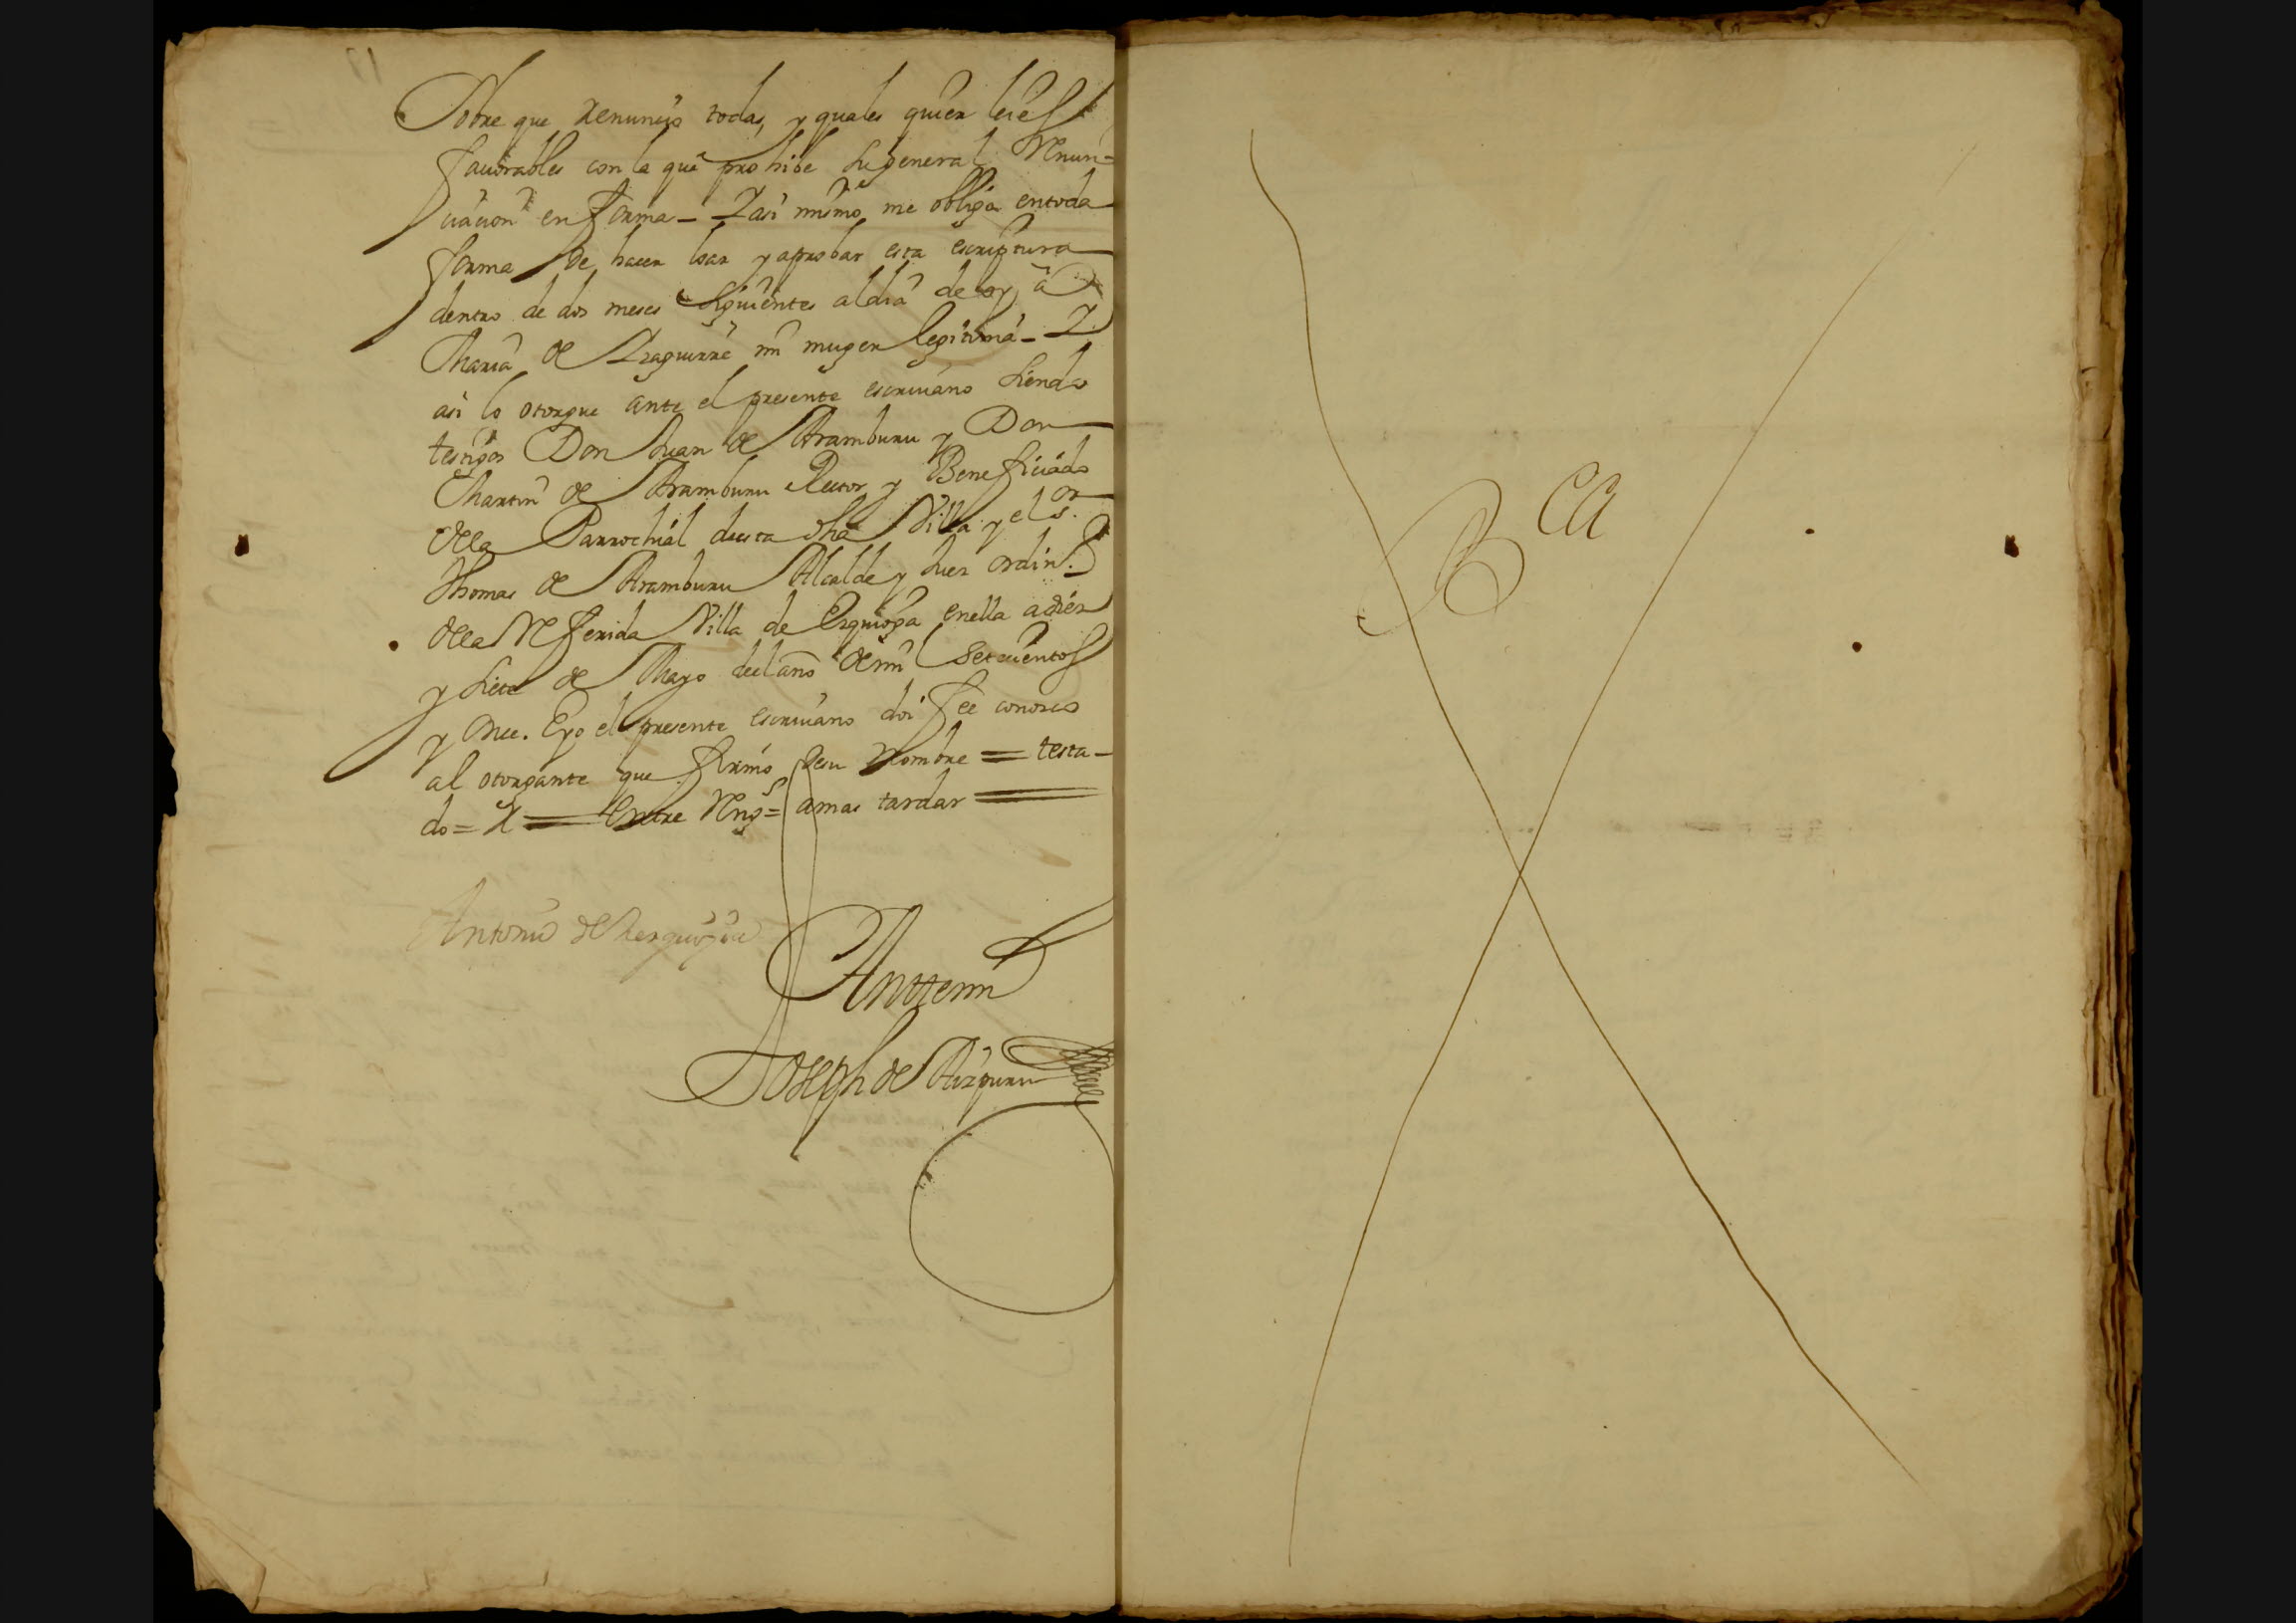 Sobre que Renuncio todas, y quales quier leies
favorables con la que prohibe su general Renun=
ciacion en forma _ Y asi mismo me obligo en toda
forma de hacer loar y aprobar esta escriptura
dentro de dos meses siguientes al dia de oy a
Maria de Yraguirre mi muger legitima _ Y
asi lo otorgue ante el presente escrivano siendo
testigos Don Juan de Aramburu y Don
Martin de Aramburu Rector y Beneficiado
de la Parrochial de esta dha Villa y el sor.
Thomas de Aramburu Alcalde y Juez ordin.º
de la Referida Villa de Ezquioga en ella a diez
y siete de Mayo de el año de mil setecientos
y Once. E yo el presente escrivano doi fee conozco
al otorgante que firmo de su Nombre = testa-
do = X = Entre Reng.s = a mas tardar =
17
Antonio de
Anttemi
Joseph de Aizpuru
Bca